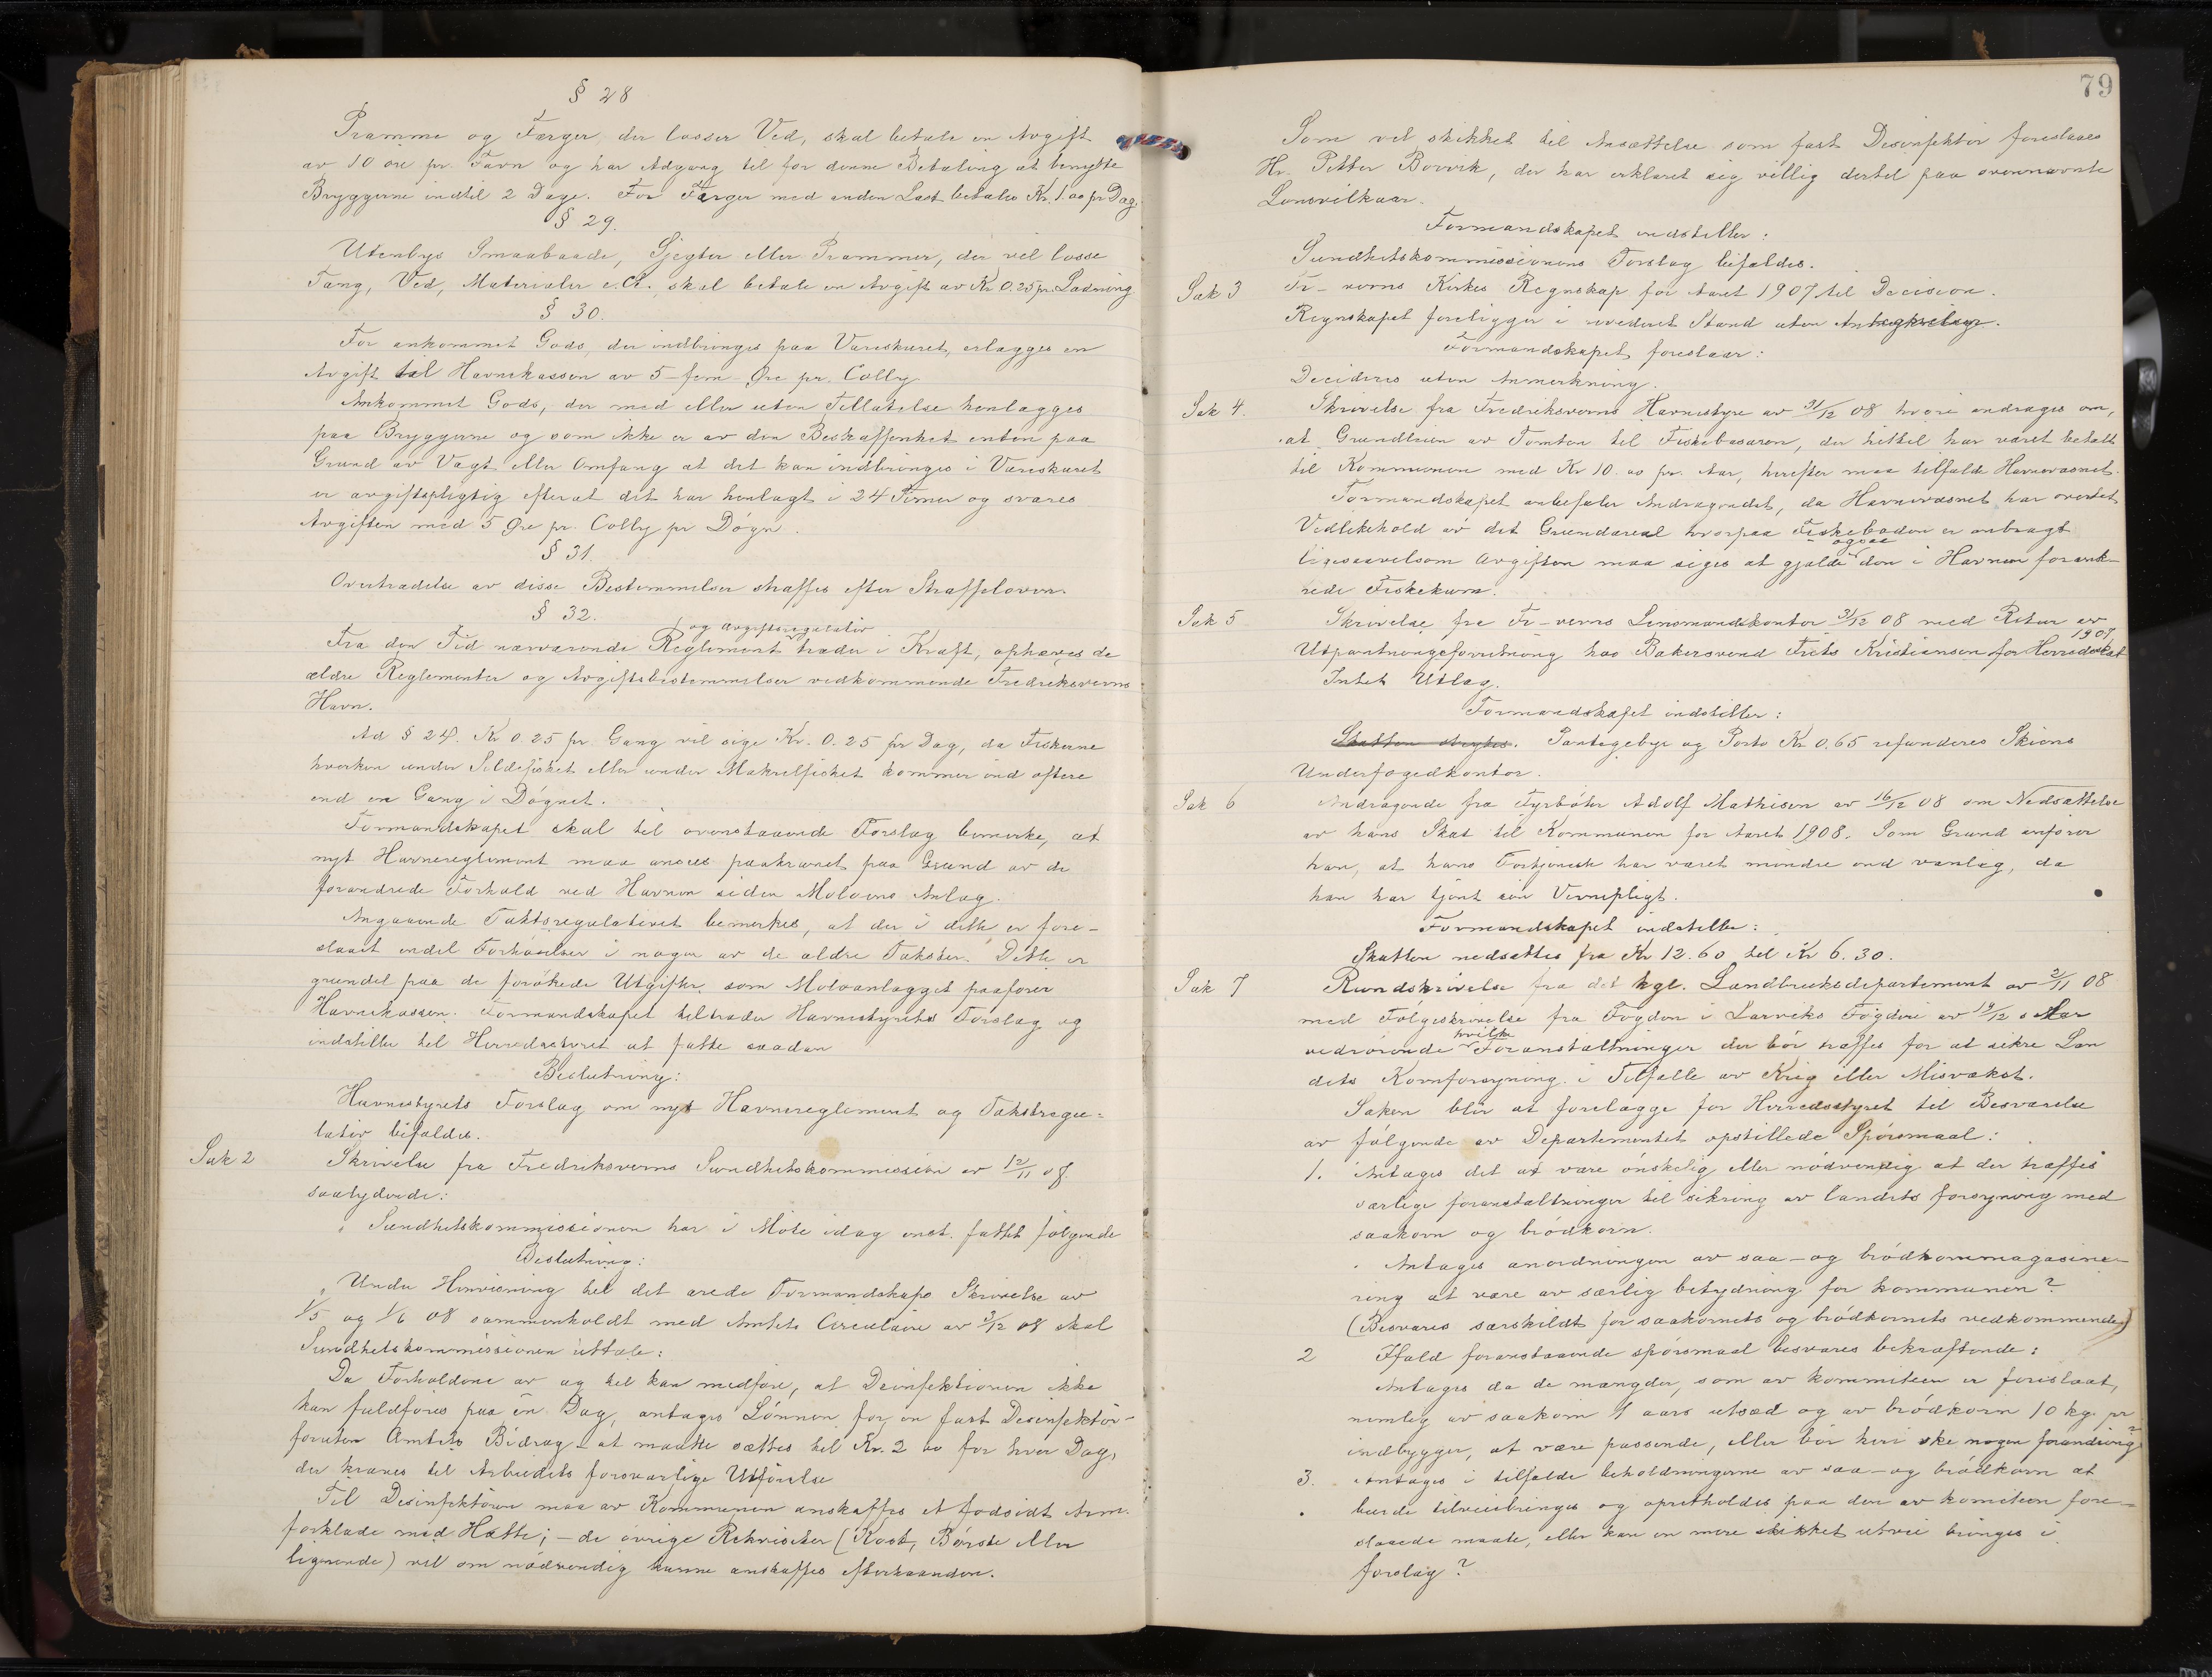 § 28
Pramme og Færger der losser Ved, skal betale en Avgift
av 10 øre pr. Favn og har Adgang til for denne Betaling at benytte
Bryggerne indtil 2 Dage. For Færger med anden Last betales Kr. 1.00 pr Dag.
§ 29.
Utenbys Smaabaade, Sjegter eller Prammer, der vil losse
Tang, Ved, Materialer e.a. skal betale en Avgift av Kr 0.25 pr. Ladning
§ 30.
For ankommet Gods, der indbringes paa Vareskuret, erlægges en
Avgift til Havnekassen av 5 - fem - Øre pr. Colly
Ankommet Gods, der med eller uten Tilladelse henlægges
paa Bryggerne og som ikke er av den Beskaffenhet enten paa
Grund av Vægt eller Omfang at det kan indbringes i Vareskuret
er avgiftspligtig efterat det har henlagt i 24 Timer og svares
Avgiften med 5 Øre pr. Colly pr Døgn.
§ 31.
Overtrædelse av disse Bestemmelser straffes efter Straffeloven.
§ 32.
og Avgiftsregulativ
Fra den Tid nærværende Reglement træder i Kraft, ophæves de
ældre Reglementer og Avgiftsbestemmelser vedkommende Fredriksværns
Havn.
Ad § 24. Kr 0.25 pr. Gang vil sige Kr. 0.25 pr Dag, da Fiskerne
hverken under Sildefisket eller under Makrelfisket kommer ind oftere
end en Gang i Døgnet.
Formandskapet skal til ovenstaaende Forslag bemerke, at
nyt Havnereglement maa ansees paakrævet paa Grund av de
forandrede Forhold ved Havnen siden Moloens Anlæg.
Angaaende Takstregulativet bemerkes, at der i dette er fore-
slaaet endel Forhøielser i nogen av de ældre Takster. Dette er
grundet paa de forøkede Utgifter, som Moloanlægget paafører
Havnekassen. Formandskapet tiltræder Havnestyrets Forslag og
indstiller til Herredsstyret at fatte saadan
Beslutning:
Havnestyrets Forslag om nyt Havnereglement og Takstregu-
lativ bifaldes.
Sak 2 Skrivelse fra Fredriksværns Sundhetskommission av 12/11 08.
saalydende:
" Sundhetskommissionen har i Møte idag enst. fattet følgende
Beslutning:
" Under Henvisning til det ærede Formandskaps Skrivelse av
1/5 og 1/6 08 sammenholdt med Amtets Circulære av 3/12 08 skal
Sundhetskommissionen uttale:
Da Forholdene av og til kan medføre, at Desinfektionen ikke
kan fuldføres paa en Dag, antages Lønnen for en fast Desinfektør -
foruten Amtets Bidrag - at maatte sættes til Kr. 2 00 for hver Dag,
der kræves til Arbeidets forsvarlige Utførelse
Til Desinfektøren maa av Kommunen anskaffes et fodsidt Ærm-
forklæde med Hætte; - de øvrige Rekvisiter (Kost, Børste eller
lignende) vil om nødvendig kunne anskaffes efterhaanden.
79
Som vel skikket til Ansættelse som fast Desinfektør foreslaaes
Hr. Petter Borvik, der har erklæret sig villig dertil paa ovennævnte
Lønsvilkaar.
Formandskapet indstiller:
Sundhetskommissionens Forslag bifaldes.
Sak 3 Fr-verns Kirkes Regnskap for Aaret 1907 til Decision.
Regnskapet foreligger i revideret Stand uten Antegnelser.
Formandskapet foreslaar:
Decideres uten Anmerkning.
Sak 4. Skrivelse fra Fredriksverns Havnestyre av 31/12 08 hvori andrages om,
at Grundleien av Tomten til Fiskebasaren, der hittil har været betalt
til Kommunen med Kr 10.00 pr. Aar, herefter maa tilfalde Havnevæsnet.
Formandskapet anbefaler Andragendet, da Havnevæsnet har overtat
Vedlikehold av det Grundareal hvorpaa Fiskeboden er anbragt
ogsaa
likesaavelsom Avgiften maa siges at gjælde den i Havnen forank-
rede Fiskekum.
Sak 5 Skrivelse fra Fr-verns Lensmandskontor 31/12 08 med Retur av
1907,
Utpantningsforretning hos Bakersvend Frits Kristiansen for Herredsskat
Intet Utlæg.
Formandskapet indstiller:
Skatten strykes. Pantegebyr og Porto Kr 0.65 refunderes Skiens
Underfogedkontor.
Sak 6 Andragende fra Fyrbøter Adolf Mathisen av 16/12 08 om Nedsættelse
av hans Skat til Kommunen for Aaret 1908. Som Grund anfører
han, at hans Fortjeneste har været mindre end vanlig, da
han har tjent sin Vernepligt.
Formandskapet indstiller:
Skatten nedsættes fra Kr 12.60 til Kr 6.30.
Sak 7 Rundskrivelse fra det kgl. Landbruksdepartement av 2/11 08
med Følgeskrivelse fra Fogden i Larviks Fogderi av 19/12 s Aar
hvilke
vedrørende Foranstaltninger der bør træffes for at sikre Lan
dets Kornforsyning i Tilfælle av Krig eller Misvækst.
Saken blir at forelægge for Herredsstyret til Besvarelse
av følgende av Departementet opstillede Spørsmaal:
1. Antages det at være ønskelig eller nødvendig at der træffes
særlige foranstaltninger til sikring av landets forsyning med
saakorn og brødkorn.
Antages anordningen av saa- og brødkornmagasine-
ring at være av særlig betydning for kommunen?
(Besvares særskildt for saakornets og brødkornets vedkommende)
2 Ifald foranstaaende spørsmaal besvares bekræftende:
Antages da de mængder, som av kommiteen er foreslaat,
nemlig av saakorn 1 aars utsæd og av brødkorn 10 kg. pr
indbygger, at være passende, eller bør heri ske nogen forandring?
3. Antages i tilfælde beholdningerne av saa- og brødkorn at
burde tilveiebringes og opretholdes paa den av komiteen fore-
slaaede maate, eller kan en mere skikket utvei bringes i
forslag?